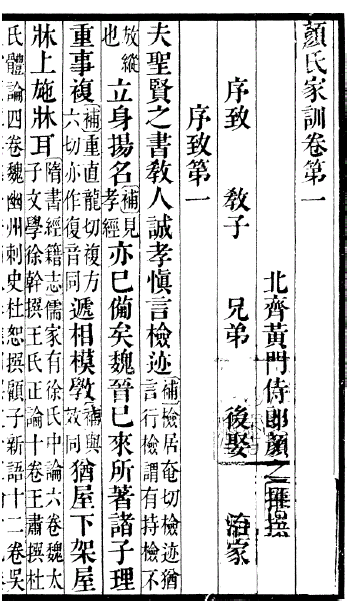 顏氏家訓卷第一
北齊黃門侍郎顏之推撰
序致 敎子 兄弟 後娶 治家
序致第一
夫聖賢之書敎人誠孝愼言檢迹補檢居奄切檢迹猶言行檢謂有持檢不
放縱也立身揚名補見孝經亦已備矣魏晉已來所著諸子理
重事複補重直龍切複方六切亦作復音同遞相模斆補與效同猶屋下架屋
牀上施牀耳隋書經籍志儒家有徐氏中論六卷魏太子文學徐幹撰王氏正論十卷王肅撰杜
氏體論四卷魏幽州刺史杜恕撰顧子新語十二卷吳